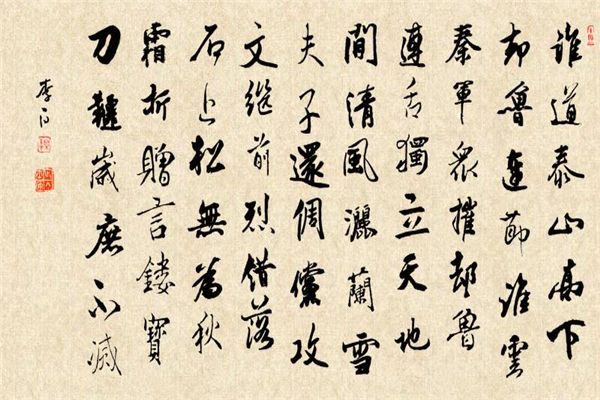 誰道泰山高下
却魯連節誰雲
秦軍眾摧却魯
連舌獨立天地
間清風灑蘭雪
夫子還倜儻攻
文继前烈錯落
石上松無為秋
霜折贈言鏤寶
刀韆歲庶不滅
李白